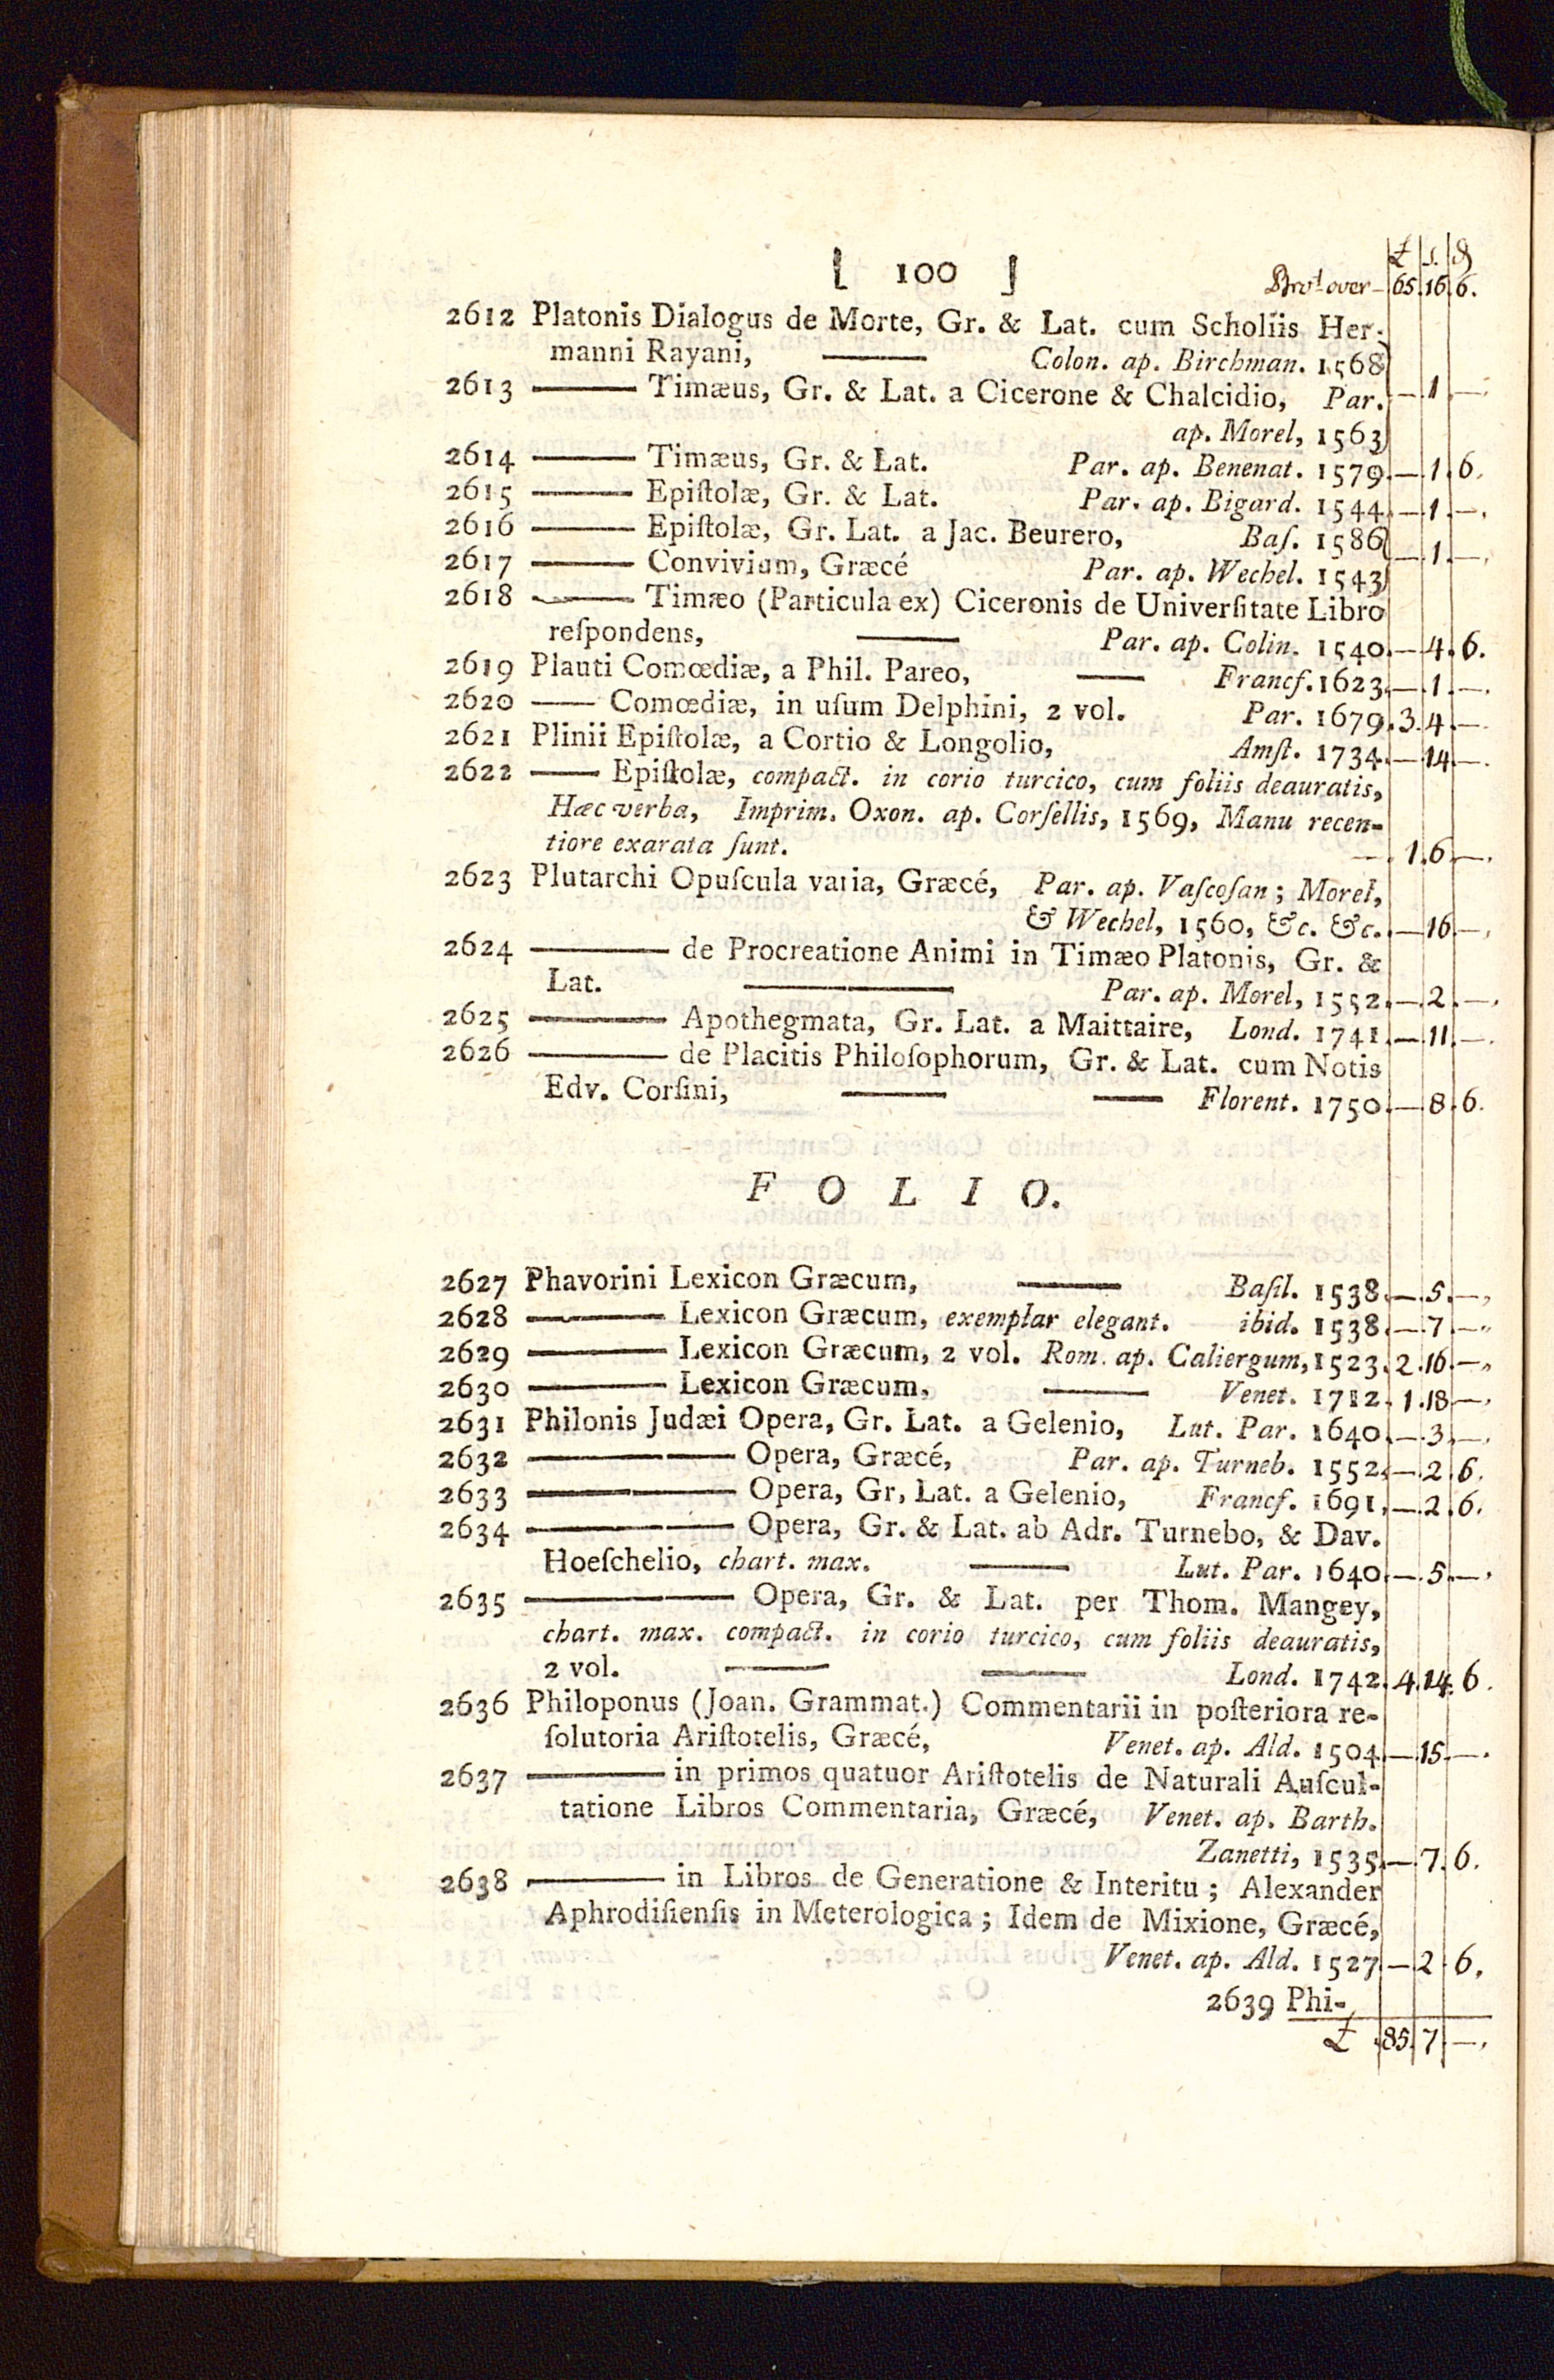 £ s. d
[ 100 ] Brot over — 65.16.6.
2612 Platonis Dialogus de Morte, Gr. & Lat. cum Scholiis Her-
manni Rayani, —— Colon. ap. Birchman. 1568
2613 —— Timæus, Gr. & Lat. a Cicerone & Chalcidio, Par. — . 1 . —
ap. Morel, 1563
2614 —— Timæus, Gr. & Lat. Par. ap. Benenat. 1579 . — . 1 . 6.
2615 —— Epiſtolæ, Gr. & Lat. Par. ap. Bigard. 1544 . — . 1 . —
2616 —— Epiſtolæ, Gr. Lat. a Jac. Beurero, Baſ. 1586
2617 —— Convivium, Græcé Par. ap. Wechel. 1543 — . 1 . —
2618 —— Timæo (Particula ex) Ciceronis de Univerſitate Libro
reſpondens, —— Par. ap. Colin. 1540 . — . 4 . 6.
2619 Plauti Comœdiæ, a Phil. Pareo, —— Francf. 1623 . — . 1 . —
2620 —— Comœdiæ, in uſum Delphini, 2 vol. Par. 1679 . 3 . 4 . —
2621 Plinii Epiſtolæ, a Cortio & Longolio, Amſt. 1734 . — 14 . —
2622 —— Epiſtolæ, compact. in corio turcico, cum foliis deauratis,
Hæc verba, Imprim. Oxon. ap. Corſellis, 1569, Manu recen-
tiore exarata ſunt. — . 1 . 6 . —
2623 Plutarchi Opuſcula varia, Græcé, Par. ap. Vaſcoſan; Morel,
& Wechel, 1560, &c. &c. . — 16 . —
2624 —— de Procreatione Animi in Timæo Platonis, Gr. &
Lat. —— Par. ap. Morel, 1552 . — . 2 . —
2625 —— Apothegmata, Gr. Lat. a Maittaire, Lond. 1741 . — . 11 . —
2626 —— de Placitis Philoſophorum, Gr. & Lat. cum Notis
Edv. Corſini, —— —— Florent. 1750 . — . 8 . 6.
FOLIO.
2627 Phavorini Lexicon Græcum, —— Baſil. 1538 . — . 5 . —
2628 —— Lexicon Græcum, exemplar elegant. ibid. 1538 . — . 7 . —
2629 —— Lexicon Græcum, 2 vol. Rom. ap. Caliergum, 1523 . 2 . 16 . —
2630 —— Lexicon Græcum, —— Venet. 1712 . 1 . 18 . —
2631 Philonis Judæi Opera, Gr. Lat. a Gelenio, Lut. Par. 1640 . — . 3 . —
2632 —— Opera, Græcé, Par. ap. Turneb. 1552 . — . 2 . 6.
2633 —— Opera, Gr, Lat. a Gelenio, Francf. 1691 . — . 2 . 6.
2634 —— Opera, Gr. & Lat. ab Adr. Turnebo, & Dav.
Hoeſchelio, chart. max. —— Lut. Par. 1640 . — . 5 . —
2635 —— Opera, Gr. & Lat. per Thom. Mangey,
chart. max. compact. in corio turcico, cum foliis deauratis,
2 vol. —— —— Lond. 1742 . 4 . 14 . 6.
2636 Philoponus (Joan. Grammat.) Commentarii in poſteriora re-
ſolutoria Ariſtotelis, Græcé, Venet. ap. Ald. 1504 . — 15 . —
2637 —— in primos quatuor Ariſtotelis de Naturali Auſcul-
tatione Libros Commentaria, Græcé, Venet. ap. Barth.
Zanetti, 1535 . — . 7 . 6.
2638 —— in Libros de Generatione & Interitu; Alexander
Aphrodiſienſis in Meterologica; Idem de Mixione, Græcé,
Venet. ap. Ald. 1527 — . 2 . 6.
2639 Phi-
£ . 85 . 7 . —